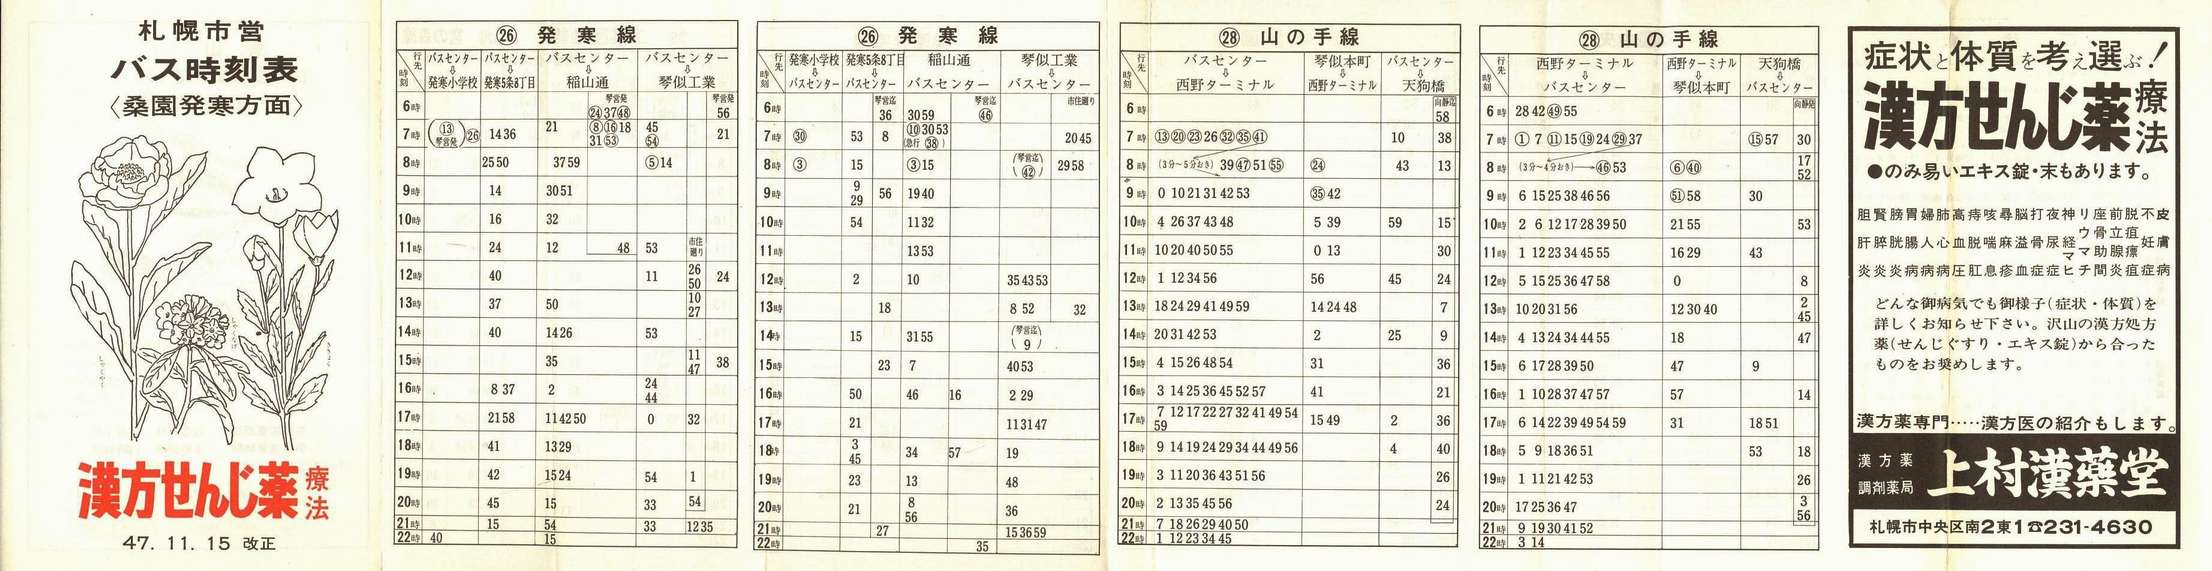 札幌市営
バス時刻表
〈桑園発寒方面〉
しゃくやく
しゃくなげ
ききょう
漢方せんじ薬 療法
47. 11. 15 改正
㉖ 発寒線
行先 時刻 バスセンター⇩発寒小学校 バスセンター⇩発寒5条8丁目 バスセンター⇩稲山通 バスセンター⇩琴似工業
6時 琴営発 ㉔37㊽ 琴営発 56
7時 (⑬琴営発)㉖ 14 36 21 ⑧⑯18 31 53 45 54 21
8時 25 50 37 59 ⑤14
9時 14 30 51
10時 16 32
11時 24 12 48 53 市住廻り
12時 40 11 26 50 24
13時 37 50 10 27
14時 40 14 26 53
15時 35 11 47 38
16時 8 37 2 24 44
17時 21 58 11 42 50 0 32
18時 41 13 29
19時 42 15 24 54 1
20時 45 15 33 54
21時 15 54 33 12 35
22時 40 15
㉖ 発寒線
行先 時刻 発寒小学校⇩バスセンター 発寒5条8丁目⇩バスセンター 稲山通⇩バスセンター 琴似工業⇩バスセンター
6時 琴営迄 36 30 59 琴営迄 ㊻ 市住廻り
7時 ㉚ 53 8 ⑩30 53 (急行㊳) 20 45
8時 ③ 15 ③15 (琴営迄㊷) 29 58
9時 9 29 56 19 40
10時 54 11 32
11時 13 53
12時 2 10 35 43 53
13時 18 8 52 32
14時 15 31 55 (琴営迄 9)
15時 23 7 40 53
16時 50 46 16 2 29
17時 21 11 31 47
18時 3 45 34 57 19
19時 23 13 48
20時 21 8 56 36
21時 27 15 36 59
22時 35
㉘ 山の手線
行先 時刻 バスセンター⇩西野ターミナル 琴似本町⇩西野ターミナル バスセンター⇩天狗橋
6時 向静迄 58
7時 ⑬⑳㉓26㉜㉟㊶ 10 38
8時 (3分～5分おき) 39㊼51 55 ㉔ 43 13
9時 0 10 21 31 42 53 ㉟42
10時 4 26 37 43 48 5 39 59 15
11時 10 20 40 50 55 0 13 30
12時 1 12 34 56 56 45 24
13時 18 24 29 41 49 59 14 24 48 7
14時 20 31 42 53 2 25 9
15時 4 15 26 48 54 31 36
16時 3 14 25 36 45 52 57 41 21
17時 7 12 17 22 27 32 41 49 54 59 15 49 2 36
18時 9 14 19 24 29 34 44 49 56 4 40
19時 3 11 20 36 43 51 56 26
20時 2 13 35 45 56 24
21時 7 18 26 29 40 50
22時 1 12 23 34 45
㉘ 山の手線
行先 時刻 西野ターミナル⇩バスセンター 西野ターミナル⇩琴似本町 天狗橋⇩バスセンター
6時 28 42㊾55 向静発
7時 ① 7 ⑪15⑲24㉙37 ⑮57 30
8時 (3分～4分おき) ㊻53 ⑥㊵ 17 52
9時 6 15 25 38 46 56 51 58 30
10時 2 6 12 17 28 39 50 21 55 53
11時 1 12 23 34 45 55 16 29 43
12時 5 15 25 36 47 58 0 8
13時 10 20 31 56 12 30 40 2 45
14時 4 13 24 34 44 55 18 47
15時 6 17 28 39 50 47 9
16時 1 10 28 37 47 57 57 14
17時 6 14 22 39 49 54 59 31 18 51
18時 5 9 18 36 51 53 18
19時 1 11 21 42 53 26
20時 17 25 36 47 3 56
21時 9 19 30 41 52
22時 3 14
症状と体質を考え選ぶ！
漢方せんじ薬 療法
●のみ易いエキス錠・末もあります。
胆肝炎 腎膵炎 膀胱炎 胃腸病 婦人病 肺心病 高血圧 痔脱肛 咳喘息 蕁麻疹 脳溢血 打骨症 夜尿症 神経ヒ リウマチ 座骨間 前立腺炎 脱疽瘭疽 不妊症 皮膚病
どんな御病気でも御様子(症状・体質)を
詳しくお知らせ下さい。沢山の漢方処方
薬(せんじぐすり・エキス錠)から合った
ものをお奨めします。
漢方薬専門‥‥‥漢方医の紹介もします。
漢方薬
調剤薬局 上村漢薬堂
札幌市中央区南2東1☎231-4630